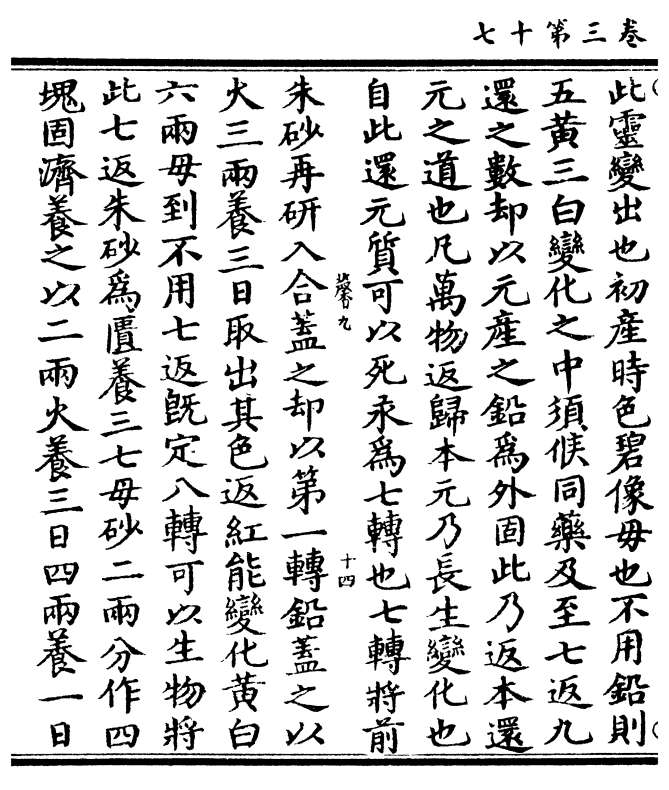 卷三第十七
此靈變出也初產時色碧像母也不用鉛則
五黃三白變化之中須候同藥及至七返九
還之數却以元產之鉛爲外固此乃返本還
元之道也凡萬物返歸本元乃長生變化也
自此還元質可以死汞爲七轉也七轉將前
馨九
十四
朱砂再研入合蓋之却以第一轉鉛蓋之以
火三兩養三日取出其色返紅能變化黃白
六兩母到不用七返旣定八轉可以生物將
此七返朱砂爲匱養三七母砂二兩分作四
塊固濟養之以二兩火養三日四兩養一日